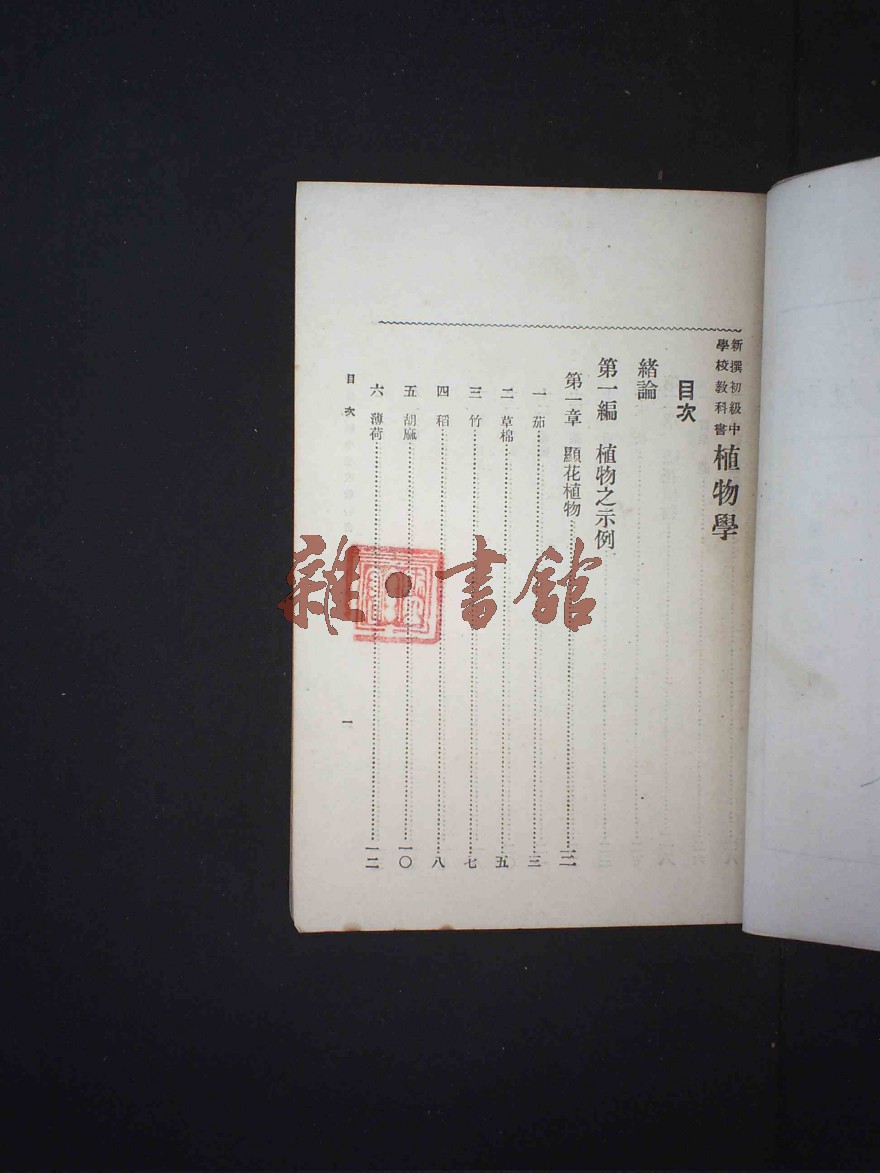 新撰初級中
學校教科書
植物學
目次
緒論
第一編 植物之示例
第一章 顯花植物……三
一 茄……三
二 草棉……五
三 竹……七
四 稻……八
五 胡麻……一〇
六 薄荷……一二
目次
一
雜·書館